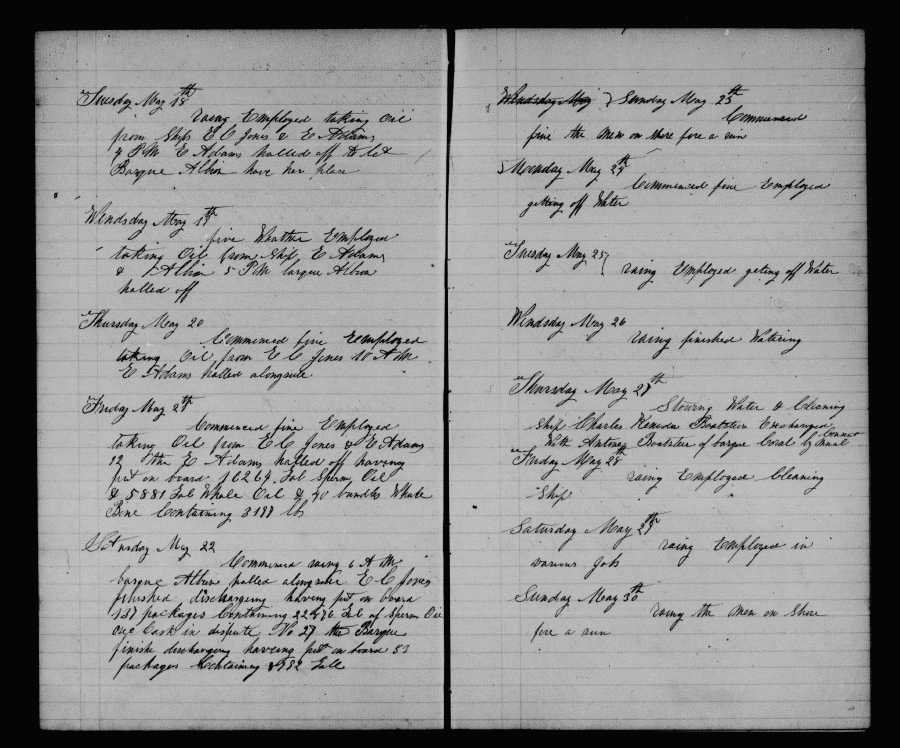 Tuesday May 18th
raing Employed taking Oil
from Ships E C Jones & E Adams
4 P M E Adams halled off to let
Barque Albion have her place
Wendsday May 19
fine Weather Employed
taking Oil from Ship E Adams
& Albion 5 P M barque Albion
halled off
Thursday May 20
Commenced fine Employed
taking Oil from E C Jones 10 A M
E Adams halled alongside
Friday May 21
Commenced fine Employed
taking Oil from E C Jones & E Adams
12 the E Adams halled off haveing
put on board 16264 Gal Sperm Oil
& 5881 Gal Whale Oil & 40 bundles Whale
Bone Containing 3188 lbs
Saturday May 22
Commenced raing 6 A M
barque Albion halled alongside E C Jones
finished dischargeing haveing put on board
137 packages Containing Gal of Sperm Oil
one Cask in dispute No 27 the Barque
finish dischargeing haveing put on board 53
packages Containing Gall
Wendsday May } Sunday May 23th
Commenced
fine the men on shore fore a run
Moenday May 24th
Commenced fine Employed
geting off Water
Tuesday May 25
raing Employed geting off Water
Wendsday May 26
raing finished Watering
Thursday May 27th
Stowing Water & Cleaning
Ship Charles Boatsteer Exchanged
With Antone Boatsteer of barque by Consent
Friday May 28th
raing Employed Cleaning
Ship
Saturday May 29th
raing Employed in
various Jobs
Sunday May 30th
raing the men on Shore
fore a run